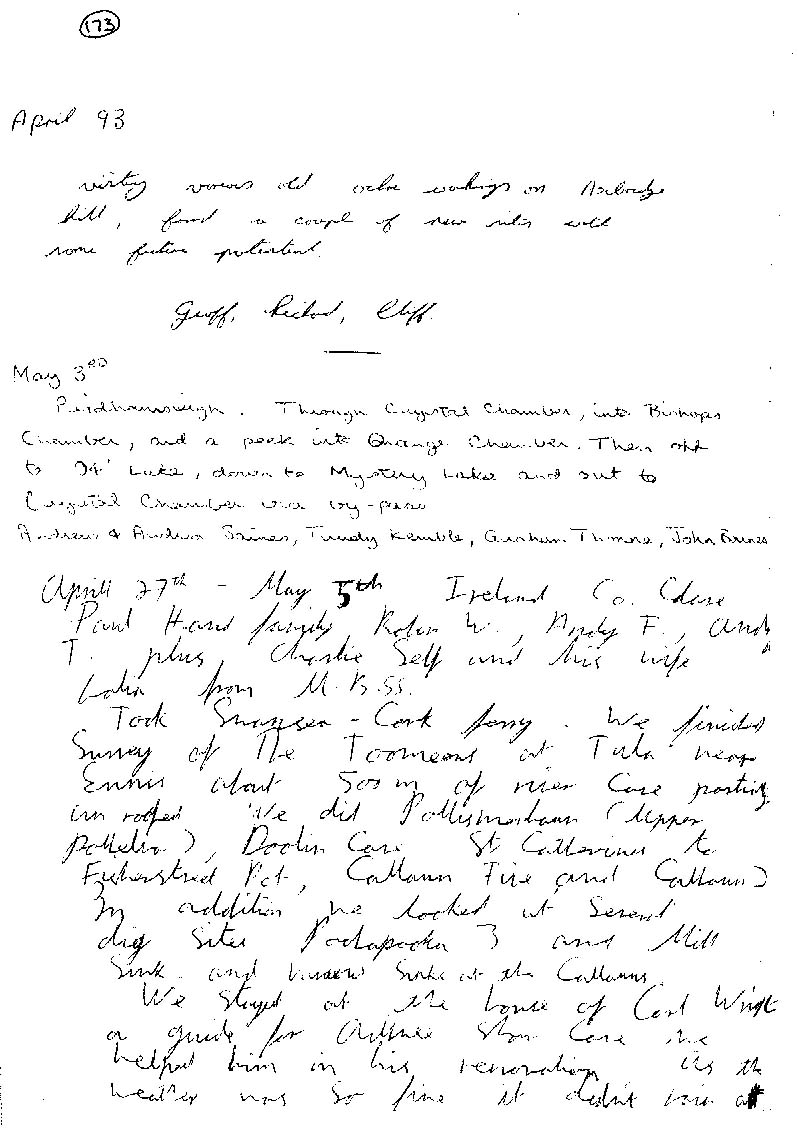 173
April 93
visiting various old ochre workings on Axbridge
hill, found a couple of new sites with
some future potential.
Geoff, Richard, Cliff.
May 3rd
Through Crystal Chamber, into Bishops
Chamber, and a peek into Grange Chamber. Then off
to 24' Lake, down to Mystery Lake and out to
Crystal Chamber via by-pass
Andrew & Andrea Trudy Kemble, Graham John
April 27th - May 5th Ireland Co. Clare
Paul Hand family Robin W., Andy F., Andy
T. plus Charlie Self and his wife
from
Took Swansea - Cork ferry. We finished
Survey of The Toomeens at Tulla near
Ennis about 500m of river Cave
un roofed We did (Upper
), Doolin Cave St Catherines to
Fisherstreet Pot,
In addition we looked at Several
dig Sites 3 and Mill
Sink and various Sinks at the
We stayed at the house of Carl Wright
a guide for Aillwee Show Cave we
helped him in his renovation As the
weather was so fine it didn't rain at